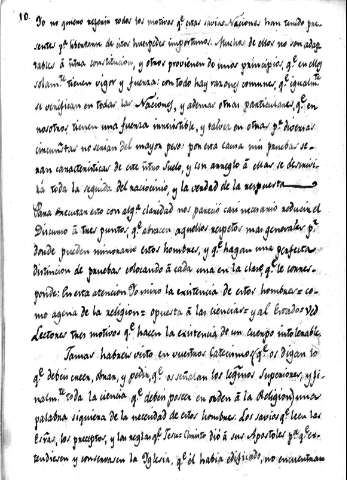 10.
Yo no quiero referir todos los motivos q.e estas sabias Naciones han tenido pre-
sentes p.a libertarse de estos huespedes importunos. Muchos de ellos no son adap-
tables á ntra constitucion, y otros provienen de unos principios, q.e en ellos
solam.te tienen vigor y fuerza: con todo hay razones comunes, q.e igualm.te
se verifican en todas las Naciones, y ademas otras particulares, q.e en
nosotros tienen una fuerza irresistible, y talvez en otras p.r diversas
circunst.as no serian del mayor peso: por esta causa mis pruebas se-
ran caracteristicas de este ntro suelo, y con arreglo á ellas se
rá toda la seguida del raciocinio, y la verdad de la respuesta
Para executar esto con alg.a claridad nos pareció casi necesario reducir el
Discurso á tres puntos, q.e abracen aquellos respetos mas generales p.r
donde pueden mirarse estos hombres, y q.e hagan una perfecta
distincion de pruebas colocando á cada una en la clase q.e le corres-
ponde: En esta atencion Yo miro la existencia de estos hombres = co-
mo agena de la religion = opuesta á las ciencias = y al Estado: ved
Lectores tres motivos q.e hacen la existencia de un cuerpo intolerable.
Jamas habreis visto en vuestros Catecismos (q.e os digan lo
q.e debeis creen, obrar, y pedir, q.e os señalan los legitimos Superiores, y fi-
nalm.te toda la ciencia q.e debeis poseer en orden á la Religion) una
palabra siquiera de la necesidad de estos hombres. Los sabios q.e leen las
los preceptos, y las reglas q.e Jesu Christo dió á sus Apostoles p.a q.e ex-
tendiesen y conservasen la Iglesia, q.e él habia edificado, no encuentran